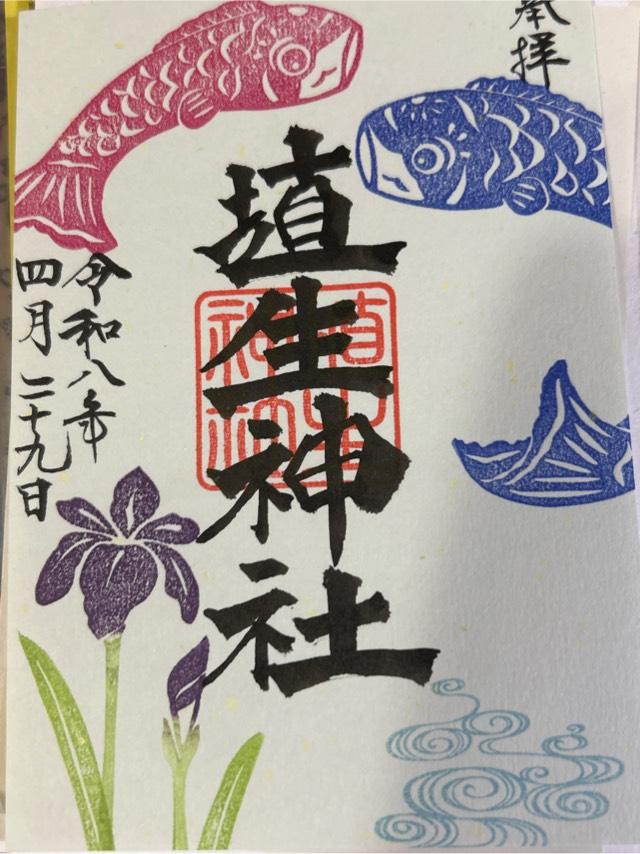 奉拝
埴生神社
令和八年
四月二十九日